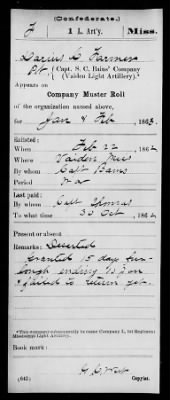 (Confederate.)
F 1 L. Art'y. Miss.
Darius C. Farmer
Pvt (Capt. S. C. Bains' Company
(Vaiden Light Artillery).*
Appears on
Company Muster Roll
of the organization named above,
for Jan & Feb, 1863.
Enlisted:
When Feb 22, 1862
Where Vaiden Miss
By whom Capt Bains
Period War
Last paid:
By whom Capt Thomas
To what time 30 Oct, 1862
Present or absent
Remarks: Deserted
Granted 15 day fur-
lough ending 15 Jan
failed to return yet.
*This company subsequently became Company L, 1st Regiment
Mississippi Light Artillery.
Book mark:
(642) Copyist.